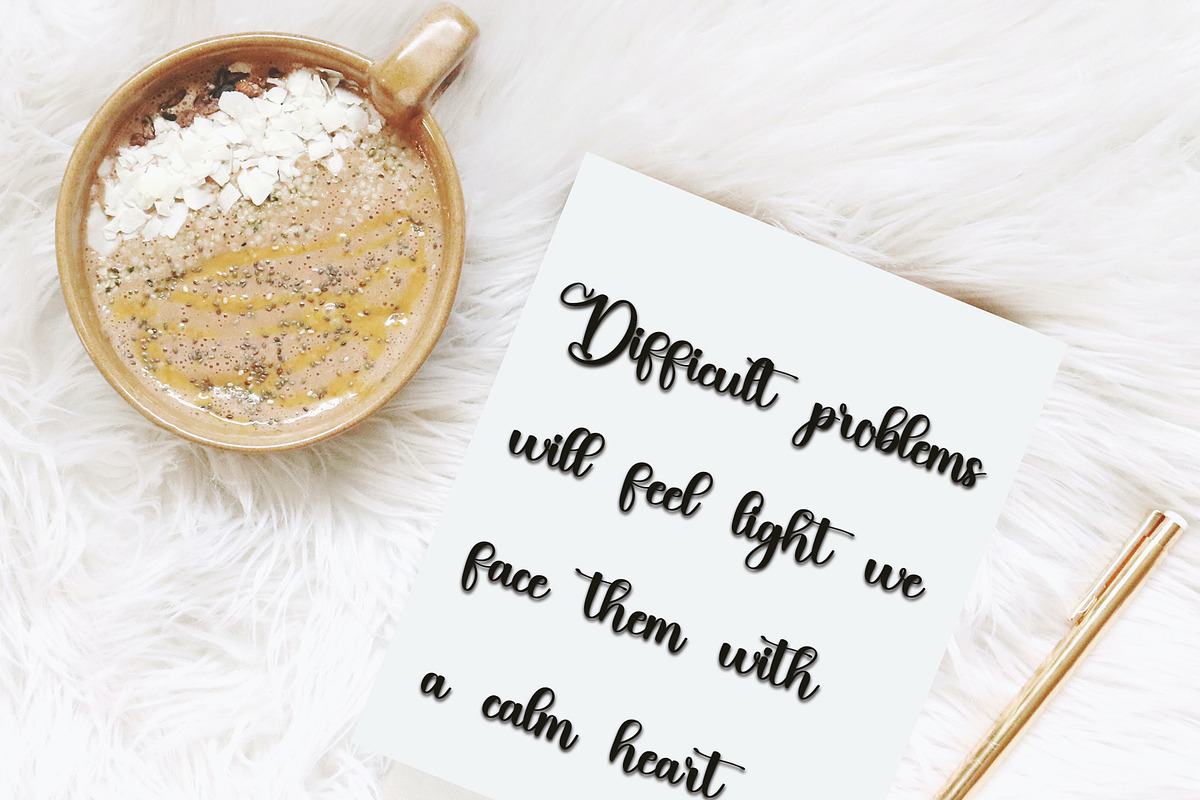 Difficult problems
will feel light we
face them with
a calm heart